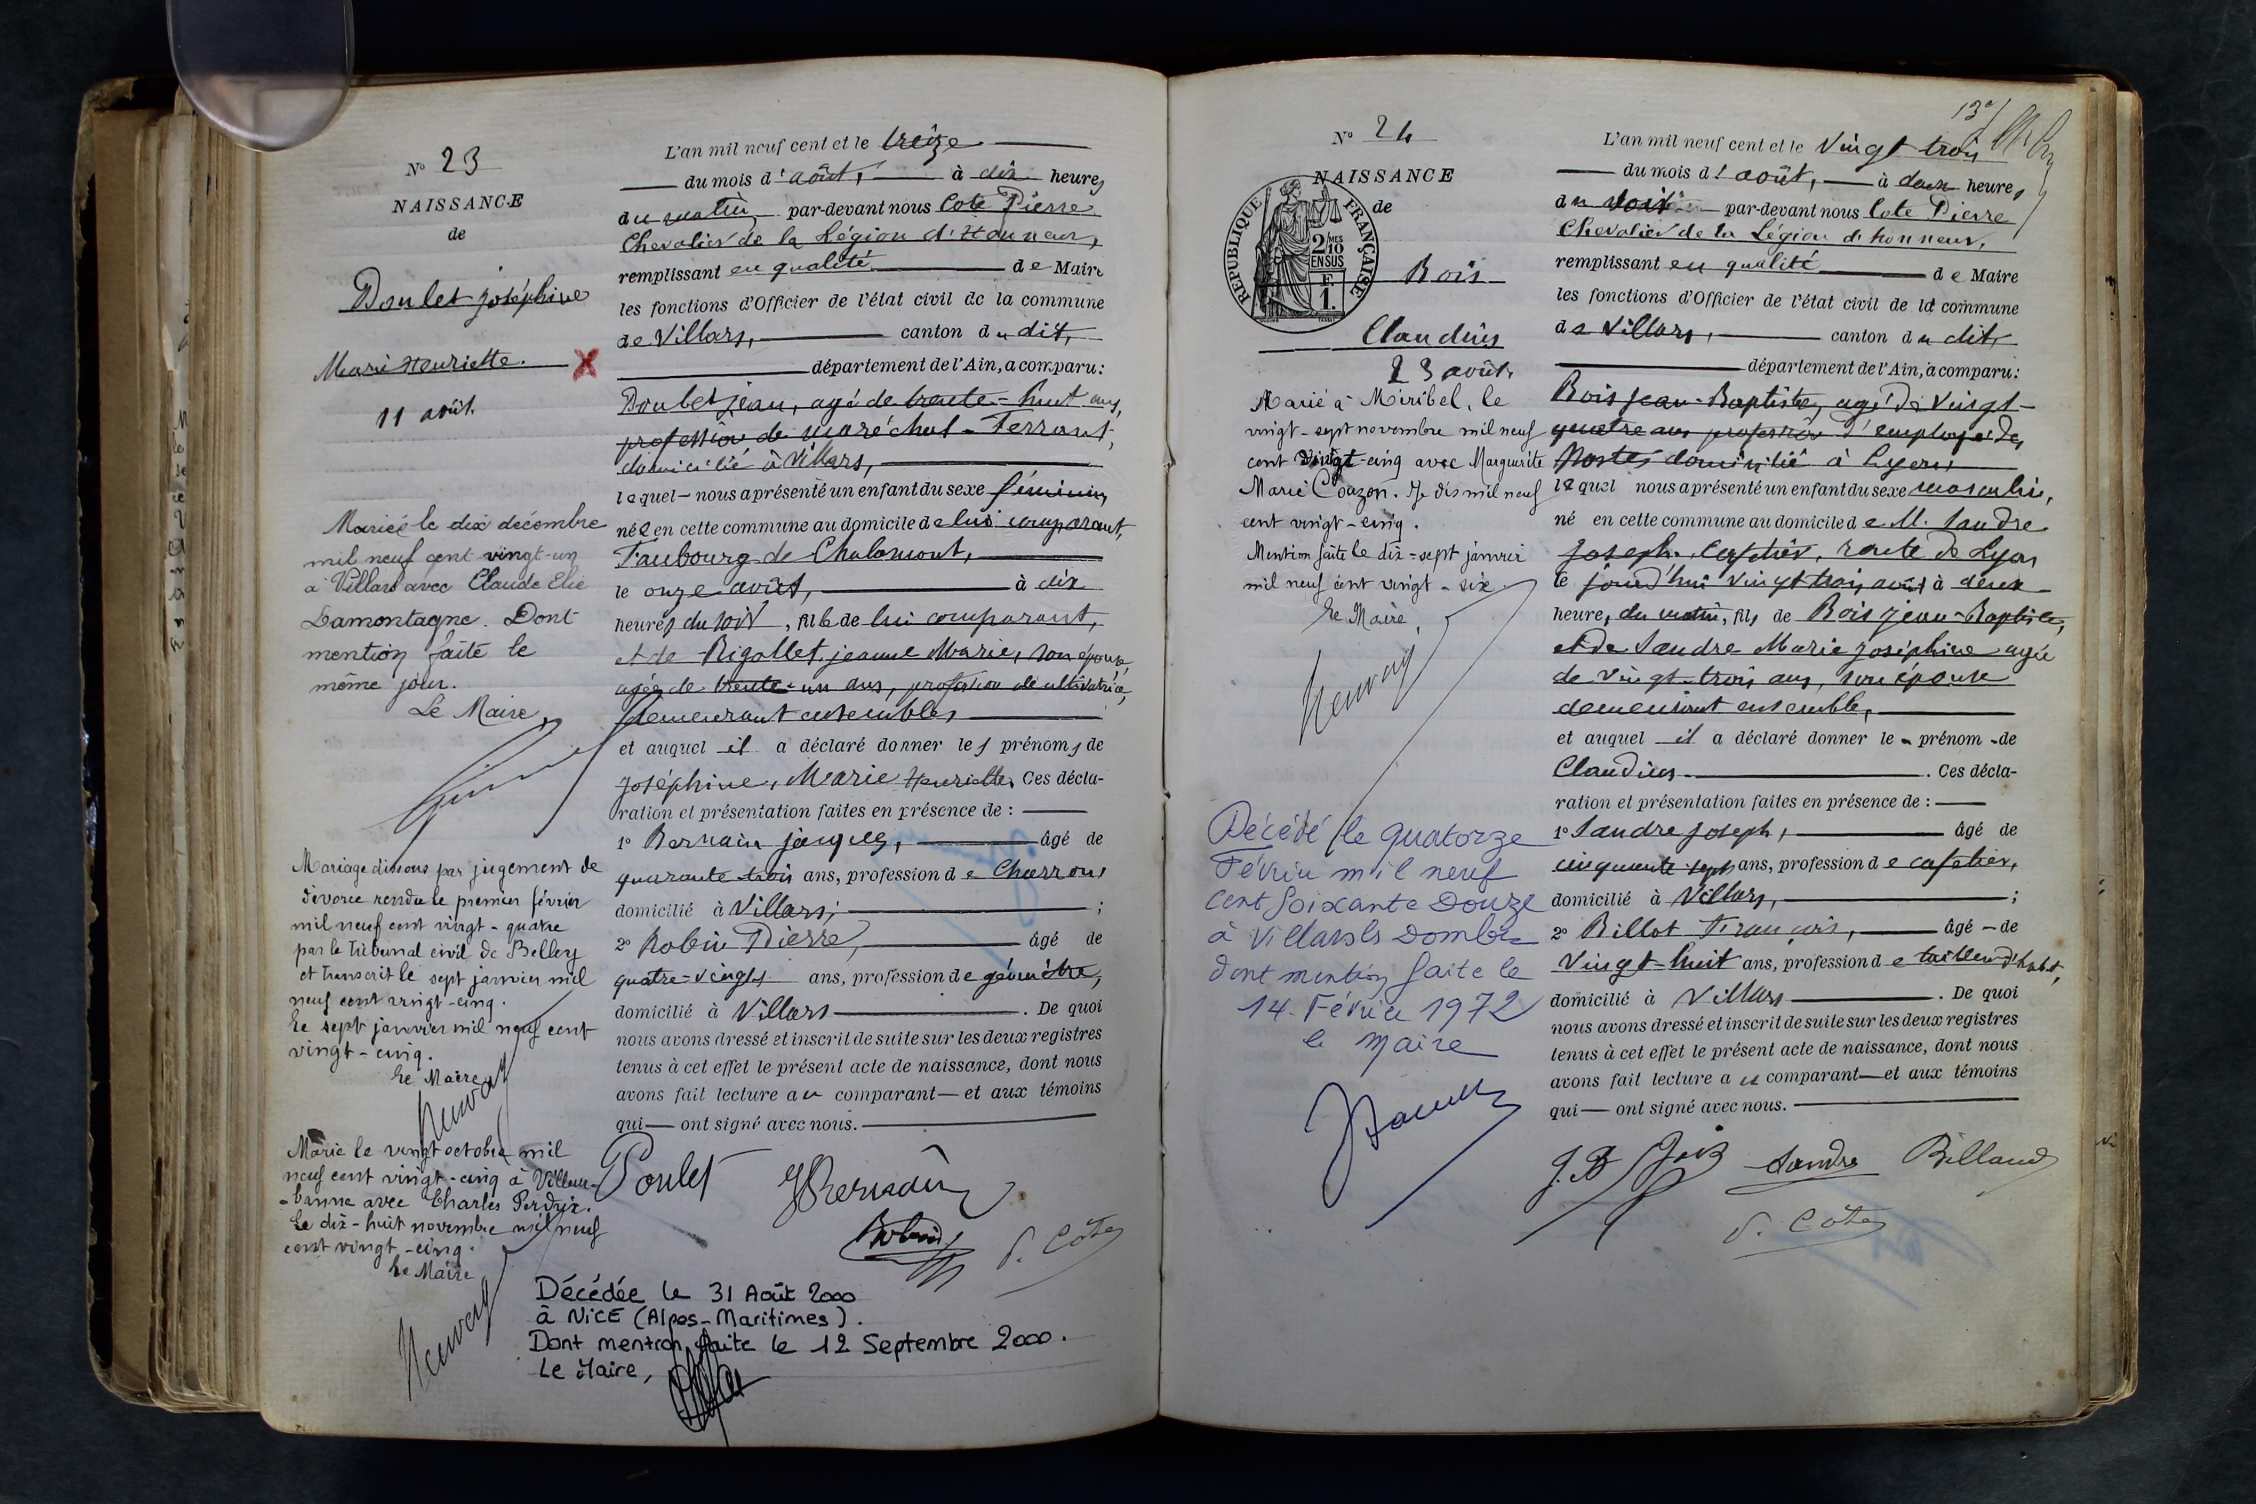 N° 23
NAISSANCE
de
Poulet Joséphine
Marie Henriette.
X
11 août.
Mariée le dix décembre
mil neuf cent vingt-un
à Villars avec Claude Elie
Lamontagne. Dont
mention faite le
même jour.
Le Maire,
Mariage dissous par jugement de
divorce rendu le premier février
mil neuf cent vingt-quatre
par le Tribunal civil de Belley
et transcrit le sept janvier mil
neuf cent vingt-cinq.
Le sept janvier mil neuf cent
vingt-cinq.
Le Maire
Marié le vingt octobre mil
neuf cent vingt-cinq à Villeur-
-banne avec Charles Perdrix.
Le dix-huit novembre mil neuf
cent vingt-cinq.
Le Maire
L'an mil neuf cent et le treize
du mois d'août, à dix heures
du matin par-devant nous Cote Pierre
Chevalier de la Légion d'Honneur,
remplissant en qualité de Maire
les fonctions d'Officier de l'état civil de la commune
de Villars, canton du dit,
département de l'Ain, a comparu:
Poulet Jean, agé de trente-huit ans,
profession de maréchal-Ferrant,
domicilié à Villars,
lequel nous a présenté un enfant du sexe féminin
née en cette commune au domicile de lui comparant,
Faubourg de Chalamont,
le onze août, à dix
heures du soir, fille de lui comparant,
et de Rigollet, jeanne Marie, son épouse,
agée de trente-un ans, profession de cultivatrice,
demeurant ensembles
et auquel il a déclaré donner les prénoms de
Joséphine, Marie Henriette. Ces décla-
ration et présentation faites en présence de :
1° Bernain jacques, âgé de
quarante trois ans, profession de Charron,
domicilié à Villars, ;
2° Robin Pierre, âgé de
quatre-vingts ans, profession de géomètre,
domicilié à Villars . De quoi
nous avons dressé et inscrit de suite sur les deux registres
tenus à cet effet le présent acte de naissance, dont nous
avons fait lecture au comparant et aux témoins
qui ont signé avec nous.
Poulet
Robin
P. Côte
Décédée le 31 Août 2000
à NICE (Alpes-Maritimes).
Dont mention faite le 12 Septembre 2000.
Le Maire,
N° 24
NAISSANCE
de
RÉPUBLIQUE FRANÇAISE
2/10 MES
EN SUS
F.
1.
Bois
Claudius
23 août.
Marié à Miribel, le
vingt-sept novembre mil neuf
cent vingt-cinq avec Marguerite
Marie Couzon. Je dis mil neuf
cent vingt-cinq.
Mention faite le dix-sept janvier
mil neuf cent vingt-six
Le Maire,
Décédé le quatorze
Février mil neuf
cent soixante Douze
à Villars les Dombes
dont mention faite le
14. Février 1972
le Maire
L'an mil neuf cent et le vingt trois
du mois d'août, à deux heures
du soir par-devant nous Cote Pierre
Chevalier de la Légion d'honneur,
remplissant en qualité de Maire
les fonctions d'Officier de l'état civil de la commune
de Villars, canton du dit,
département de l'Ain, a comparu:
Bois Jean-Baptiste, agé de Vingt-
quatre ans profession d'employé des
Postes domicilié à Lyon,
lequel nous a présenté un enfant du sexe masculin,
né en cette commune au domicile de M. Sandre
Joseph, Cafetier, route de Lyon
le jourd'hui vingt trois août à deux
heures du matin, fils de Bois Jean-Baptiste,
et de Sandre Marie Joséphine agée
de vingt-trois ans, son épouse
demeurant ensemble,
et auquel il a déclaré donner le prénom de
Claudius . Ces décla-
ration et présentation faites en présence de :
1° Sandre Joseph, âgé de
cinquante sept ans, profession de cafetier,
domicilié à Villars, ;
2° Billot François, âgé de
Vingt-huit ans, profession de tailleur d'habit,
domicilié à Villars . De quoi
nous avons dressé et inscrit de suite sur les deux registres
tenus à cet effet le présent acte de naissance, dont nous
avons fait lecture au comparant et aux témoins
qui ont signé avec nous.
J. B Bois Sandre Billaud
P. Côte